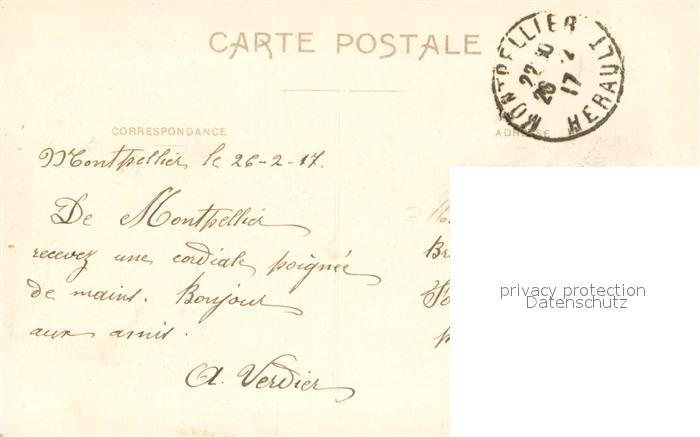 CARTE POSTALE
MONTPELLIER HERAULT
22 30
26 - 2
17
CORRESPONDANCE
ADRESSE
Montpellier le 26-2-17.
De Montpellier
recevez une cordiale poignée
de mains. Bonjour
aux amis.
A. Verdier
privacy protection
Datenschutz